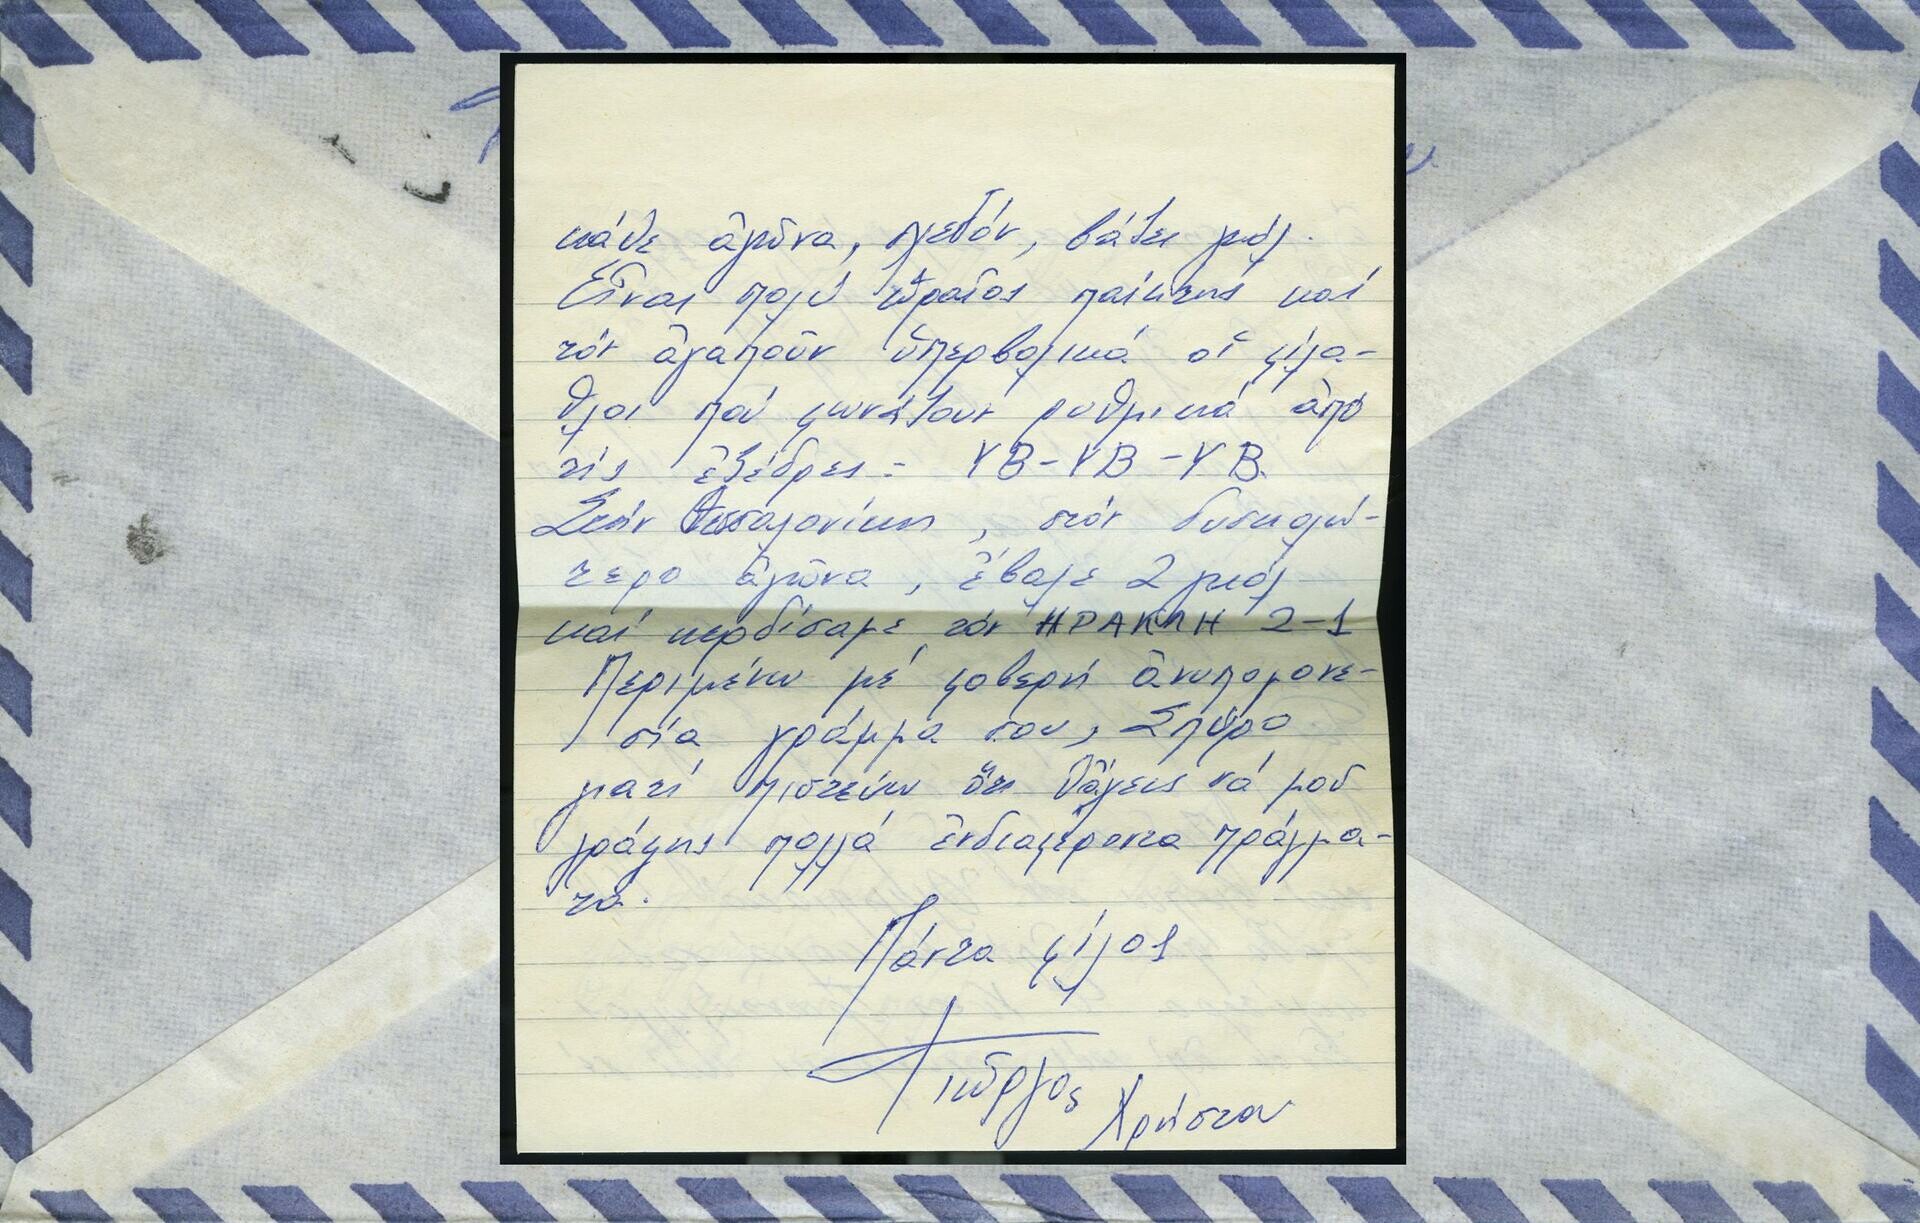 κάθε ἀγῶνα, σχεδόν, βάζει γκόλ.
Εἶναι πολύ ὡραῖος παίκτης καί
τόν ἀγαποῦν ὑπερβολικά οἱ φίλα-
θλοι πού φωνάζουν ρυθμικά ἀπό
τίς ἐξέδρες = ΥΒ-ΥΒ-ΥΒ.
Στήν Θεσσαλονίκη, στόν δυσκολώ-
τερο ἀγῶνα, ἔβαλε 2 γκόλ
καί κερδίσαμε τόν ΗΡΑΚΛΗ 2-1
Περιμένω μέ φοβερή ἀνυπομονε-
σία γράμμα σου, Σπύρο
γιατί πιστεύω ὅτι θἄχεις νά μοῦ
γράψης πολλά ἐνδιαφέροντα πράγμα-
τα.
Πάντα φίλος
Γιῶργος Χρήστου